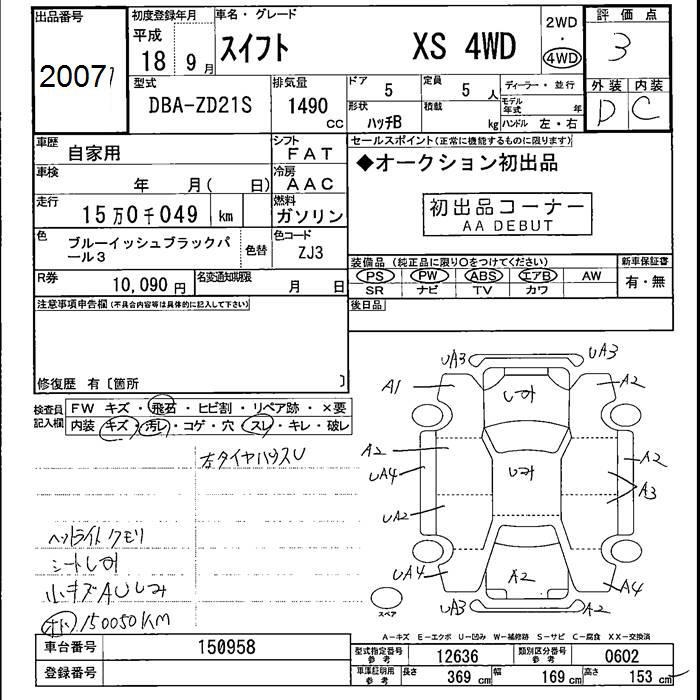 出品番号 初度登録年月 車名・グレード 2WD 評価点
20071 平成 18 9月 スイフト XS 4WD ・ 4WD 3
型式 排気量 ドア 5 定員 5人 ディーラー・並行 外装 内装
DBA-ZD21S 1490 CC 形状 ハッチB 積載 kg モデル年式 年 D C
ハンドル 左・右
車歴 自家用 シフト FAT セールスポイント(正常に機能するものに限ります)
車検 年 月( 日) 冷房 AAC ◆オークション初出品
走行 15万0千049 km 燃料 ガソリン 初出品コーナー
AA DEBUT
色 ブルーイッシュブラックパール3 色替 色コード ZJ3
装備品(純正品に限り○をつけてください) 新車保証書
PS PW ABS エアB AW 有・無
SR ナビ TV カワ
R券 10,090円 名変通知期限 月 日 後日品
注意事項申告欄(不具合内容等は具体的に記入して下さい)
修復歴 有〔箇所 〕
検査員記入欄 FW キズ・飛石・ヒビ割・リペア跡・×要
内装 キズ・汚レ・コゲ・穴・スレ・キレ・破レ
左タイヤハウスU
ヘットライトクモリ
シートしみ
小キズAUしみ
オド 150050KM
UA3 UA3
A1 しみ A2
A2 しみ A2
UA4 A3
UA2
UA4 A2 A4
UA3 A2
スペア
A-キズ E-エクボ U-凹み W-補修跡 S-サビ C-腐食 XX-交換済
車台番号 150958 型式指定番号 参考 12636 類別区分番号 参考 0602
登録番号 車庫証明用 参考 長さ 369cm 幅 169cm 高さ 153cm